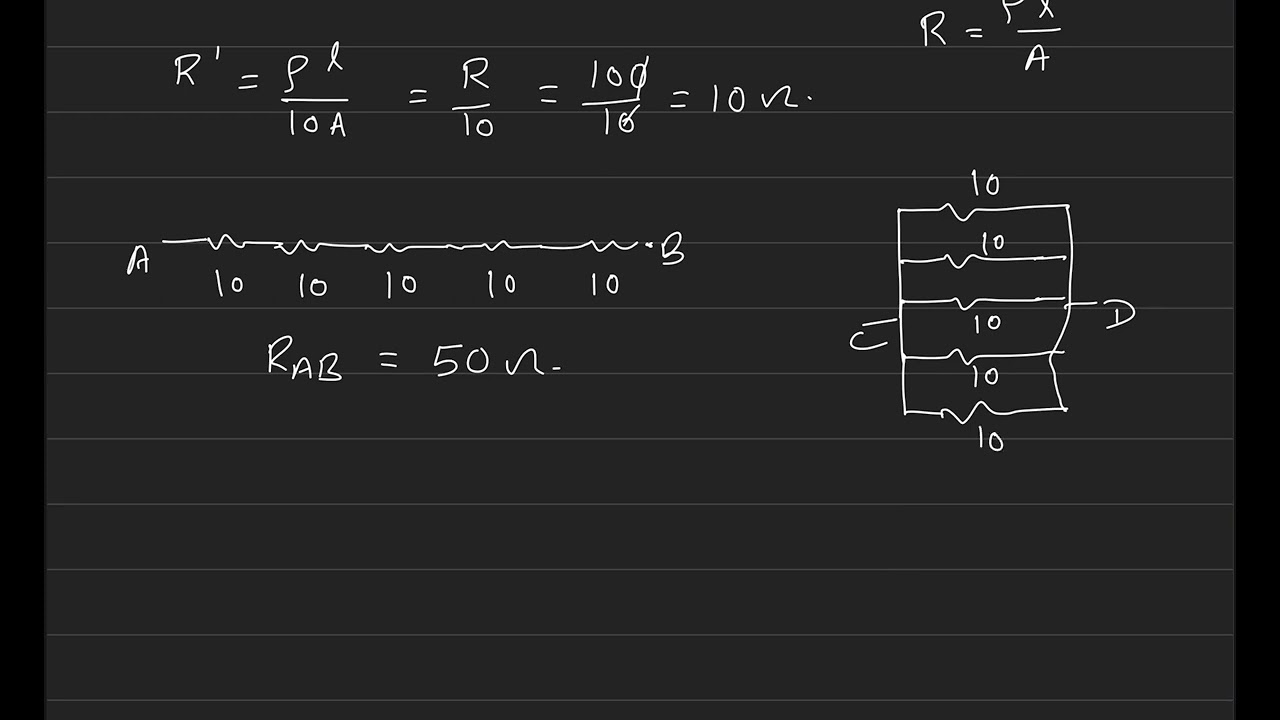 R = ρl/A
R' = ρl/10A = R/10 = 100/10 = 10 Ω.
A B
10 10 10 10 10
R_AB = 50 Ω.
10
10
C 10 D
10
10